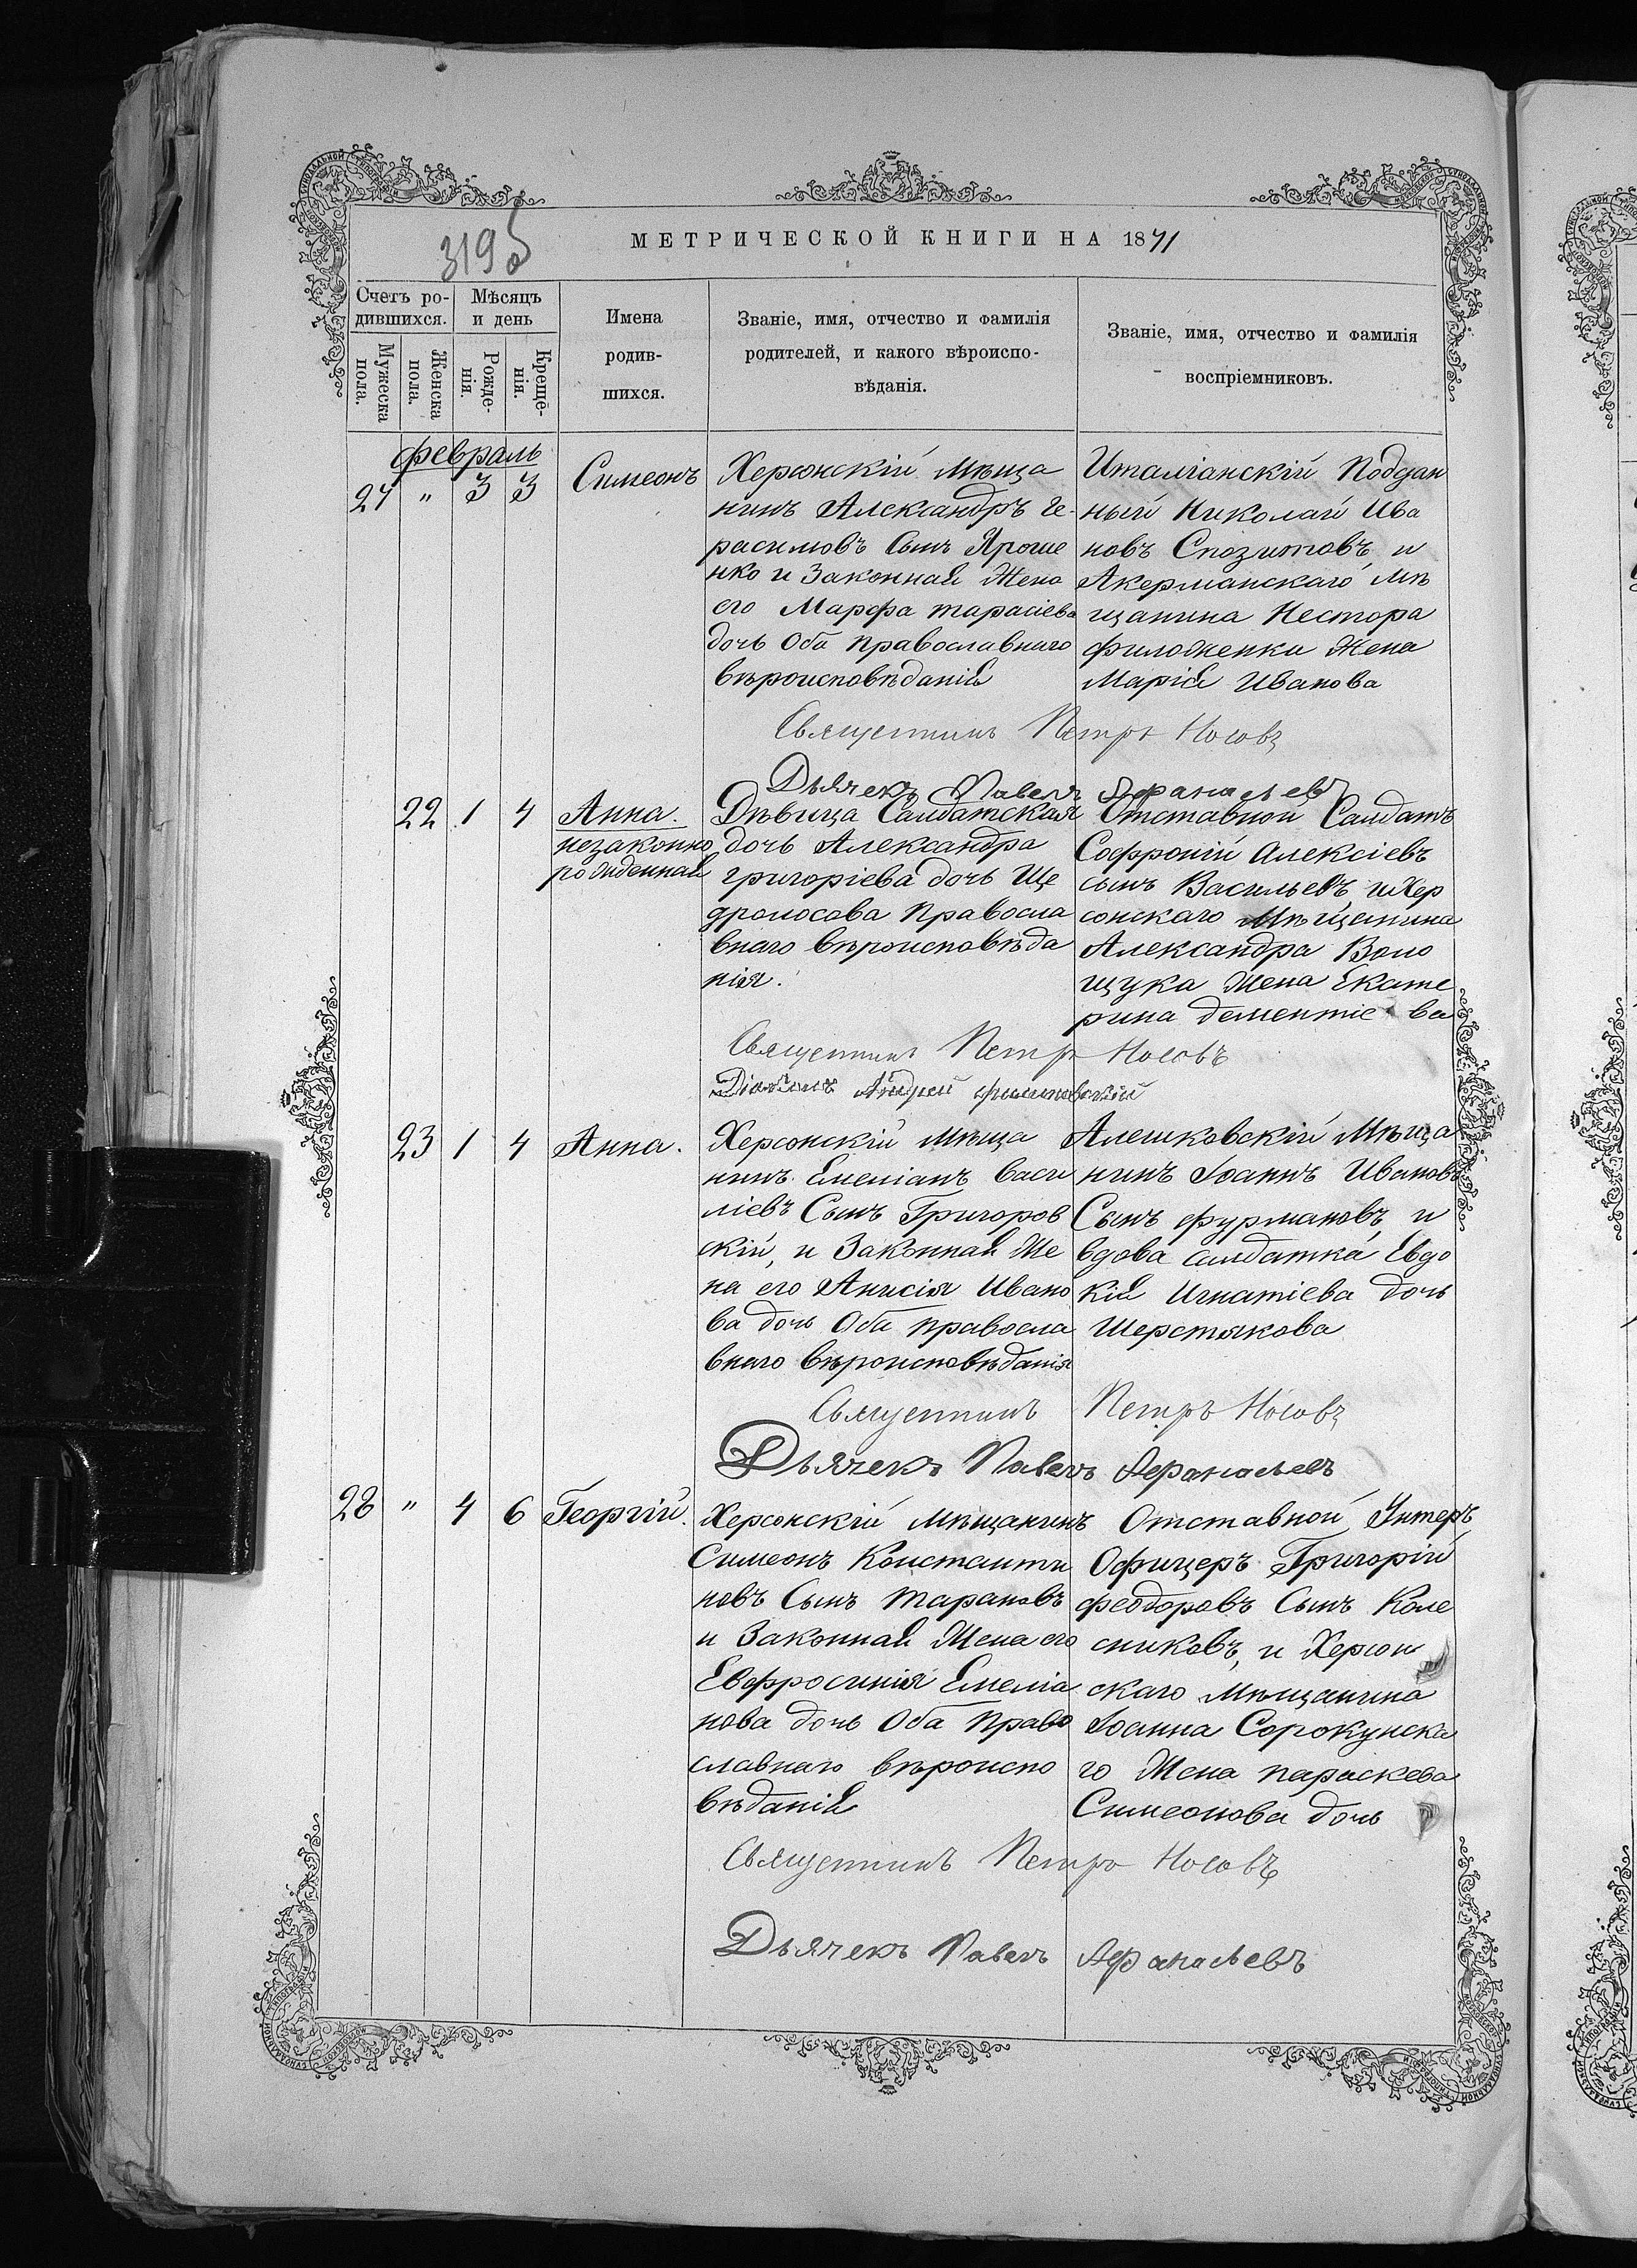 МЕТРИЧЕСКОЙ КНИГИ НА 1871
319 об
Счетъ ро-
дившихся.
Мѣсяцъ
и день
Мужеска
пола.
Женска
пола.
Рожде-
нія.
Креще-
нія.
Имена
родив-
шихся.
Званіе, имя, отчество и фамилія
родителей, и какого вѣроиспо-
вѣданія.
Званіе, имя, отчество и фамилія
воспріемниковъ.
февраль
27 " 3 3
Симеонъ
Херсонскій мѣща
нинъ Александръ Ге-
расимовъ Сынъ Яроше
нко и Законная Жена
его Марфа тарасіева
дочь Оба православнаго
вѣроисповѣданія
Италіанскій Поддан
ный Николай Ива
новъ Спозитовъ и
Акерманскаго мѣ
щанина Нестора
филоненки Жена
Марія Иванова
Священникъ Петръ Носовъ
Дьячекъ Павелъ Афанасьевъ
22 1 4
Анна.
незаконно
рожденная
Дѣвица Салдатская
дочь Александра
григоріева дочь Ще
дролосова Правосла
внаго вѣроисповѣда
нія.
Отставной Салдатъ
Софроній Алексіевъ
сынъ Васильевъ и Хер
сонскаго Мѣщанина
Александра Воло
щука Жена Екате
рина дементіева
Священникъ Петръ Носовъ
Діаконъ Андрей
23 1 4
Анна.
Херсонскій мѣща
нинъ Емеліанъ Васи
ліевъ Сынъ Григоров
скій, и Законная Же
на его Анисія Ивано
ва дочь Оба правосла
внаго вѣроисповѣданія
Алешковскій Мѣща
нинъ Іоаннъ Ивановъ
Сынъ фурмановъ, и
вдова салдатка Евдо
кія Игнатіева дочь
Шерстюкова
Священникъ Петръ Носовъ
Дьячекъ Павелъ Афанасьевъ
28 " 4 6
Георгій.
Херсонскій мѣщанинъ
Симеонъ Константи
новъ Сынъ тарановъ
и Законная Жена его
Евфросинія Емеліа
нова дочь Оба право
славнаго вѣроиспо
вѣданія
Отставной Унтеръ
Офицеръ Григорій
феодоровъ Сынъ Коле
сниковъ, и Херсон
скаго мѣщанина
Іоанна Сорокунска
го Жена параскева
Симеонова дочь
Священникъ Петръ Носовъ
Дьячекъ Павелъ Афанасьевъ